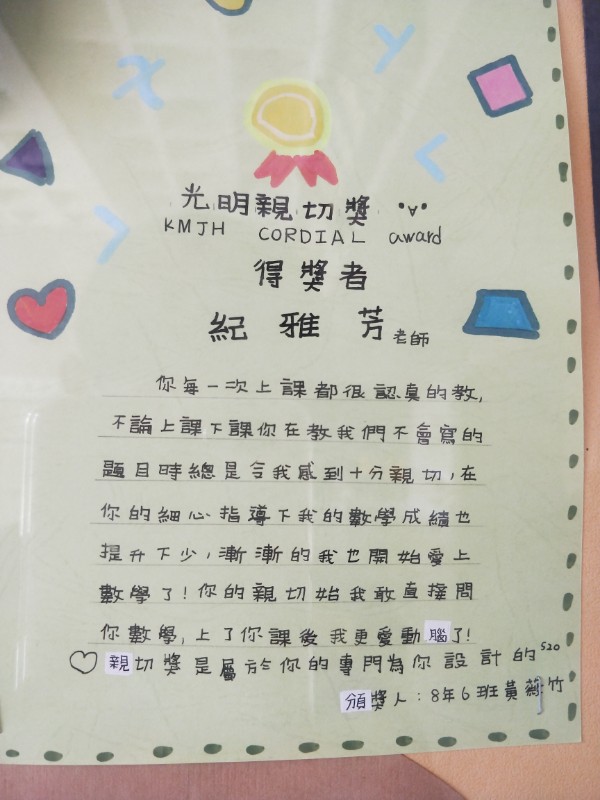 x y
光明親切獎 •∀•
KMJH CORDIAL award
得獎者
紀雅芳老師
你每一次上課都很認真的教,
不論上課下課你在教我們不會寫的
題目時總是令我感到十分親切,在
你的細心指導下我的數學成績也
提升不少,漸漸的我也開始愛上
數學了!你的親切始我敢直接問
你數學,上了你課後我更愛動腦了!
♡親切獎是屬於你的專門為你設計的520
頒獎人:8年6班黃 竹